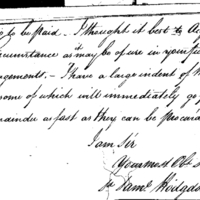 to be paid. I thought it best to
circumstance as it may be of use in your
gements. - I have a large indent of
some of which will immediately go
ainder as fast as they can be procur
I am Sir
Your most Obt
Saml Hodgdo